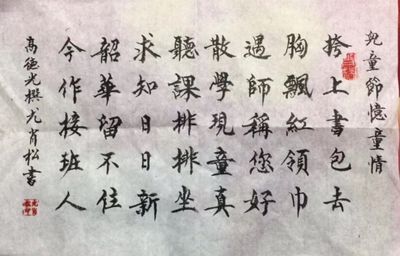 兒童節憶童情
挎上書包去
胸飄紅領巾
遇師稱您好
散學現童真
聽課排排坐
求知日日新
韶華留不住
今作接班人
高德光撰尤肖松書